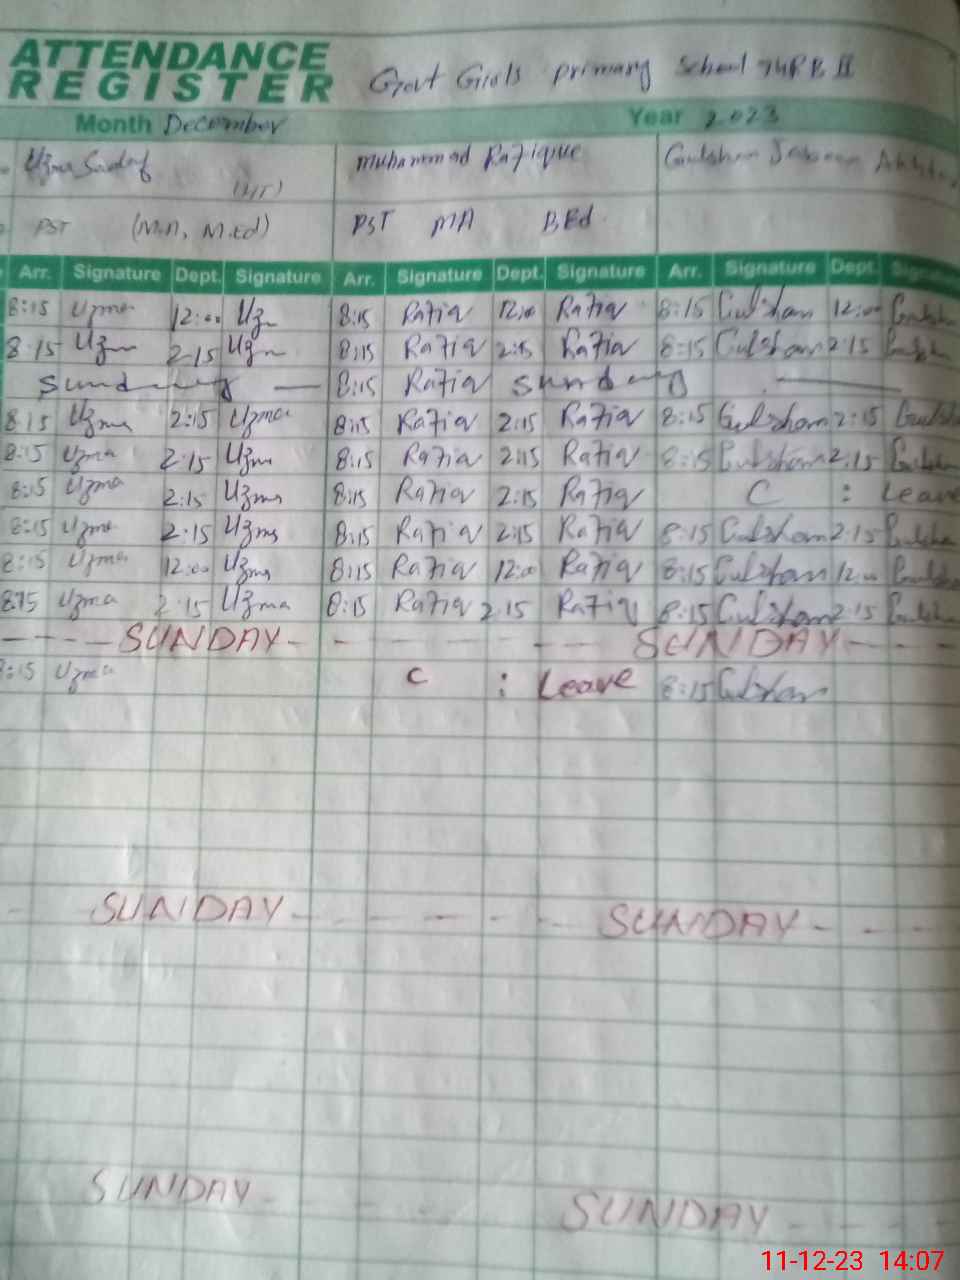 ATTENDANCE
REGISTER
Govt Girls primary School 74RB II
Month December Year 2023
Uzma Sadaf Muhammad Rafique Gulshan
(HT)
PST (M.A, M.Ed) PST MA BEd
Arr. Signature Dept. Signature Arr. Signature Dept. Signature Arr. Signature Dept. Signature
8:15 Uzma 12:00 Uzm 8:15 Rafiq 12:00 Rafiq 8:15 Gulshan 12:00 Gulsh
8:15 Uzm 2:15 Uzm 8:15 Rafiq 2:15 Rafiq 8:15 Gulshan 2:15 Gulsh
Sunday 8:15 Rafiq Sunday
8:15 Uzma 2:15 Uzma 8:15 Rafiq 2:15 Rafiq 8:15 Gulshan 2:15 Gulsha
8:15 Uzma 2:15 Uzma 8:15 Rafiq 2:15 Rafiq 8:15 Gulshan 2:15 Gulshan
8:15 Uzma 2:15 Uzma 8:15 Rafiq 2:15 Rafiq C : Leave
8:15 Uzma 2:15 Uzma 8:15 Rafiq 2:15 Rafiq 8:15 Gulshan 2:15 Gulshan
8:15 Uzma 12:00 Uzma 8:15 Rafiq 12:00 Rafiq 8:15 Gulshan 12:00 Gulsha
8:15 Uzma 2:15 Uzma 8:15 Rafiq 2:15 Rafiq 8:15 Gulshan 2:15 Gulsha
SUNDAY SUNDAY
8:15 Uzma C : Leave 8:15 Gulshan
SUNDAY SUNDAY
SUNDAY SUNDAY
11-12-23 14:07